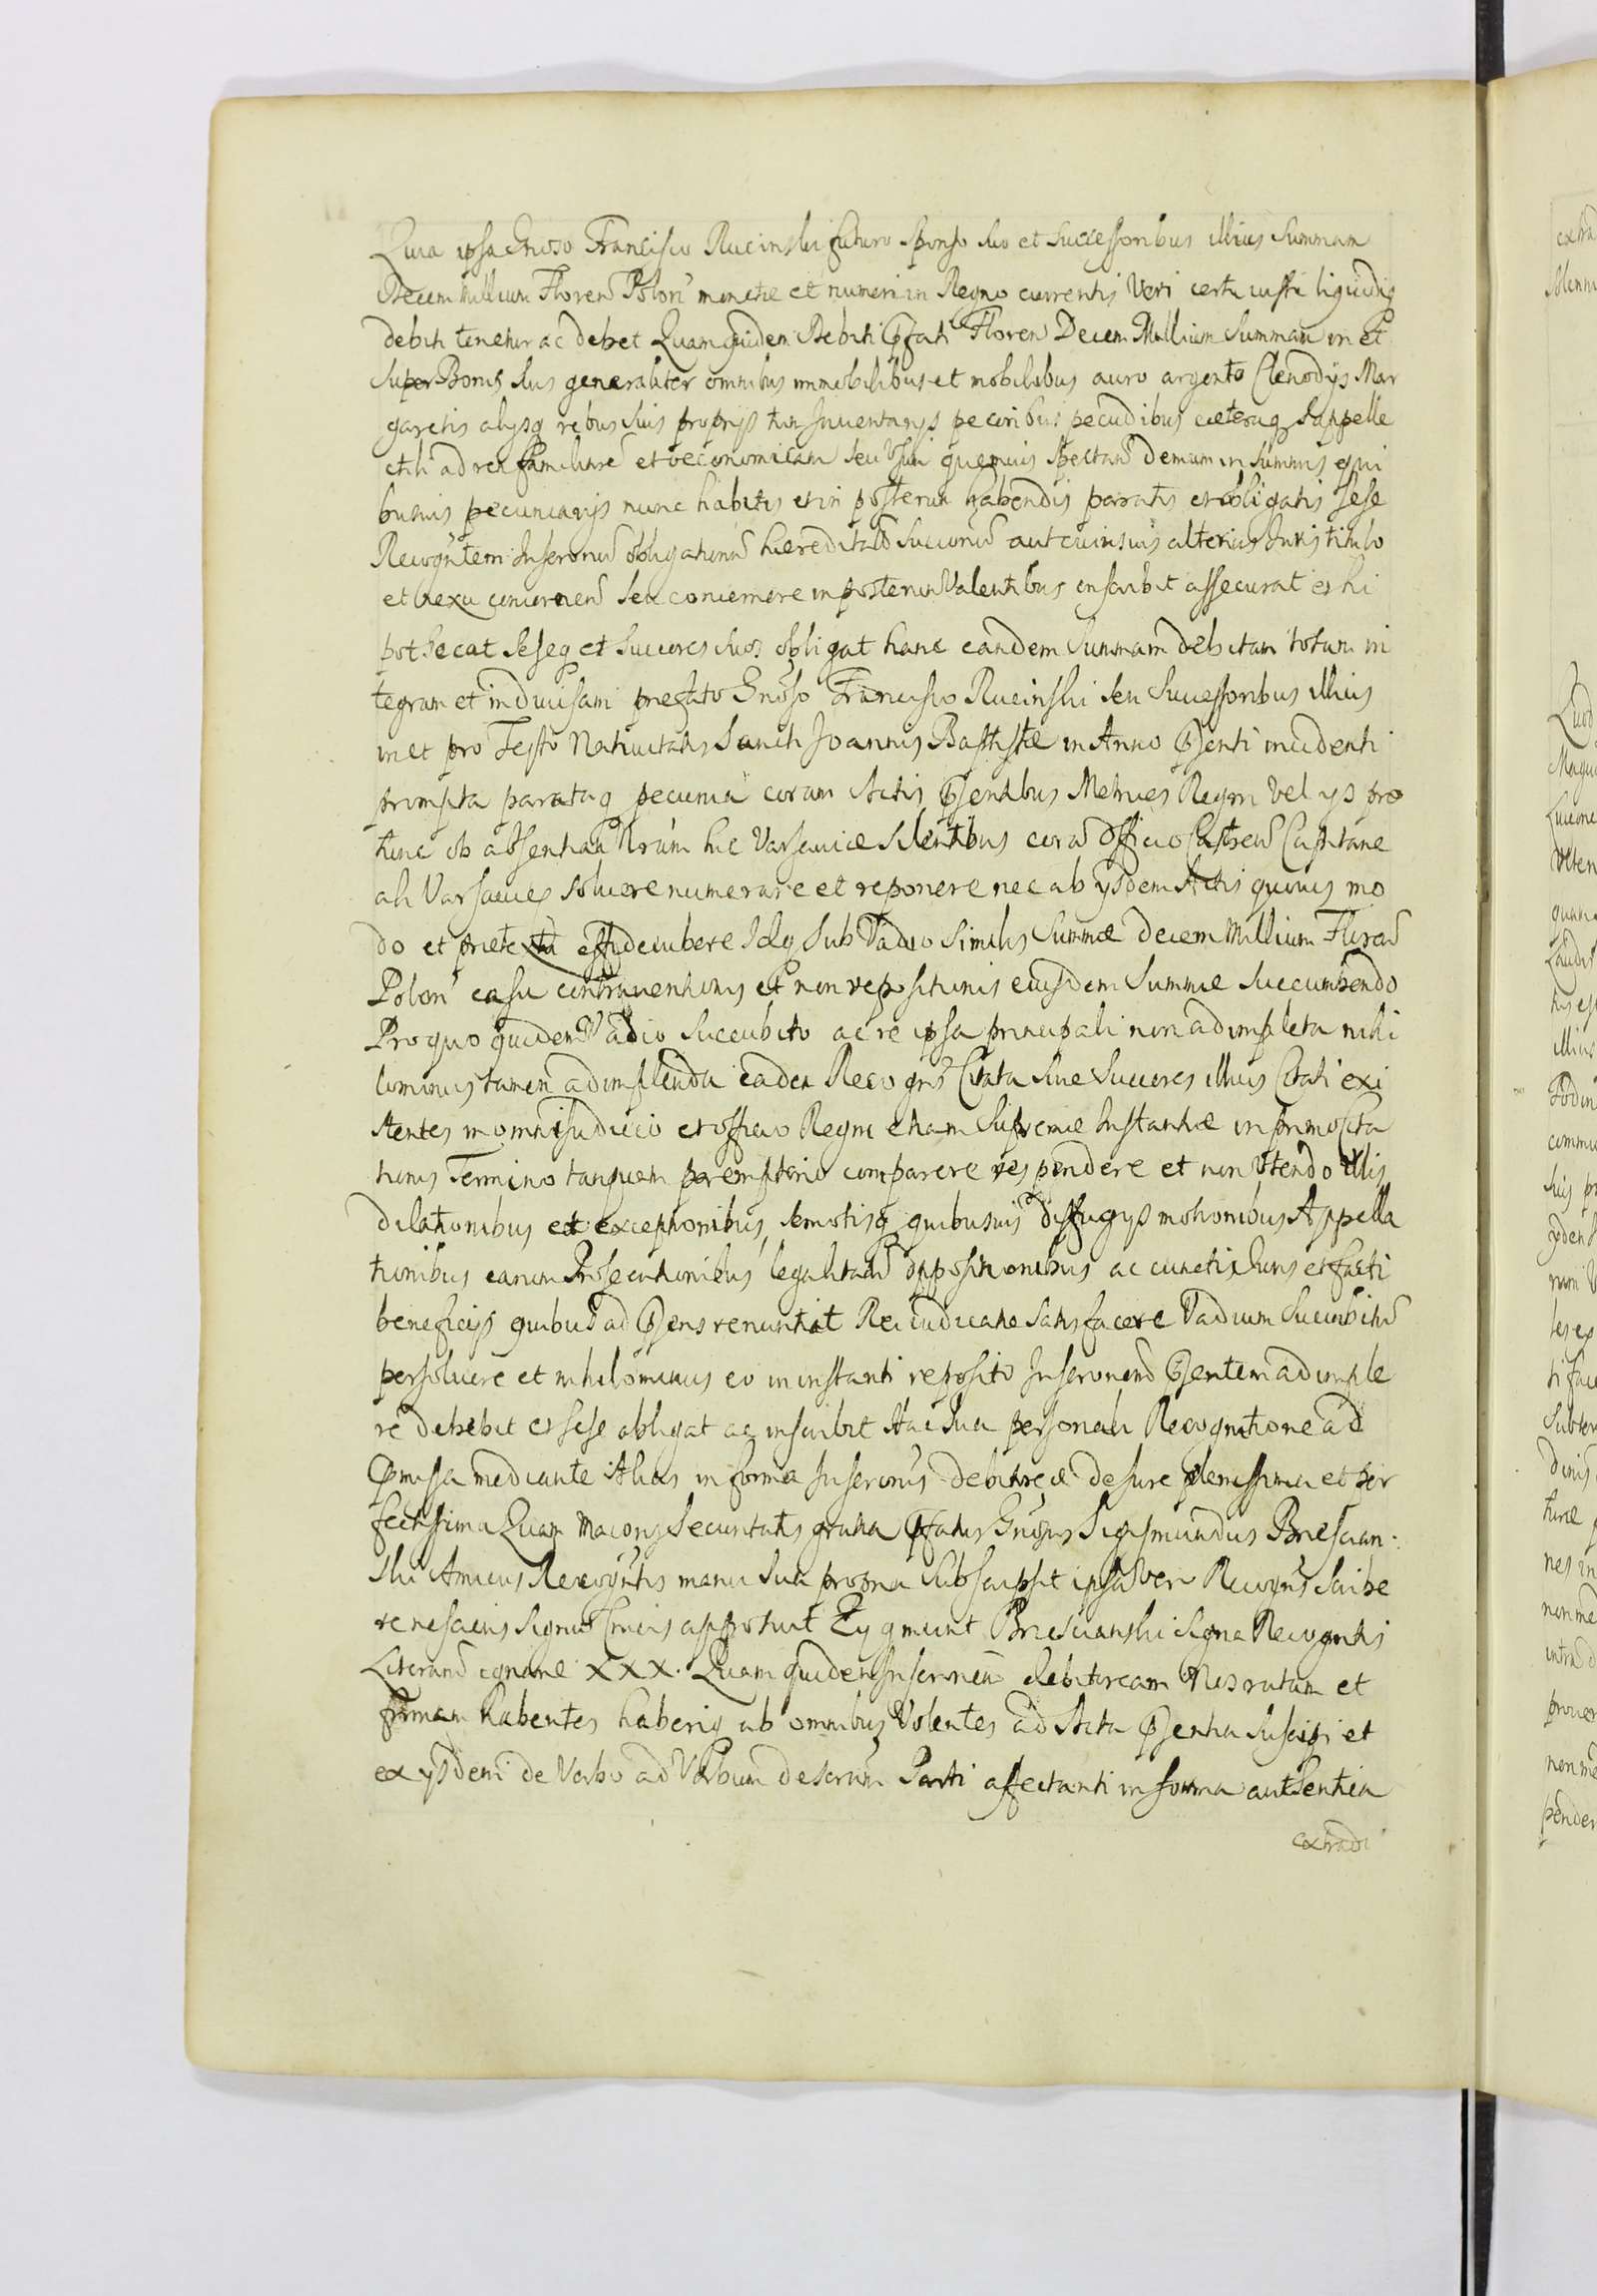 Quia ipsa Gnoso Francisco Rucinski futuro Sponso suo et Successoribus illius Summam
Decem Millium Floren Polon monetæ et numeri in Regno currentis Veri certi iusti liquidiq
debiti tenetur ac debet Quam quidem Debiti Pfati Floren Decem Millium Summam in et
super Bonis suis generaliter omnibus immobilibus et mobilibus auro argento Clenodys Mar
garetis alysq rebus suis proprys tum Inuentarys pecoribus pecudibus cæteraq Suppelle
ctili ad rem familiarē et œconomicam seu Vsum quemuis spectan demum in summis qui
busuis pecuniarys nunc habitis et in posterum habendis paratis et obligatis sese
Recogntem Inscronū obligationū hæreditatū Succonū aut cuiusuis alterius Iuris titulo
et nexu concernen seu concernere in posterum Valentibus inscribit assecurat et hi
pothecat Seseq et Succores suos obligat hanc eandem Summam debitam totam in
tegram et indiuisam præfato Gnoso Francisco Rucinski seu Successoribus illius
in et pro Festo Natiuitatis Sancti Joannis Baptistæ in Anno Psenti incidenti
prompta parataq pecunia coram Actis Psentibus Metrices Regni Vel ys pro
tunc ob absentiam Nrām hic Varsauiæ silentibus corā Officio Castren Capitane
ali Varsauieñ soluere numerare et reponere nec ab ysdem Actis quouis mo
do et prætextu effidecubere Idq sub Vadio similis Summæ decem Millium Floren
Polon casu contrauentionis et non repositionis eiusdem Summæ succumbendo
Pro quo quidem Vadio succubito ac re ipsa principali non adimpleta nihi
lominus tamen adimplenda eadem Recogns Citata siue Succores illius Citati exi
stentes in omni Iudicio et officio Regni etiam Supremæ Instantiæ in primo Cita
tionis Termino tanquam peremptorio comparere respondere et non Vtendo Vllis
dilationibus et exceptionibus, semotisq quibusuis diffugys motionibus Appella
tionibus earum Prosecutionibus legalitatū oppositionibus ac cunctis Iuris et facti
beneficys quibus ad Psens renuntiat Rei iudicatæ satisfacere Vadium succubitū
persoluere et nihilominus eo in instanti reposito Inscronem Psentem adimple
re debebit et sese obligat ac inscribit Hac sua personali Recognitione ad
Pmissa mediante Alias in forma Inscronis debitoreæ de Iure plenissima et per
fectissima Quam Maioris Securitatis gratia Pfatus Gnosus Sigismundus Brescian
ski Amicus Recogntis manu sua propria subscripsit ipsa Vero Recogns scribe
re nesciens Signum Crucis apposuit Zygmunt Brzescianski Signa Recogntis
Literarū ignaræ XXX. Quam quidem Inscronem debitoream Nos ratam et
firmam habentes haberiq ab omnibus Volentes ad Acta Psentia suscipi et
ex ysdem de Verbo ad Verbum descriām Parti affectanti in forma authentica
extradi